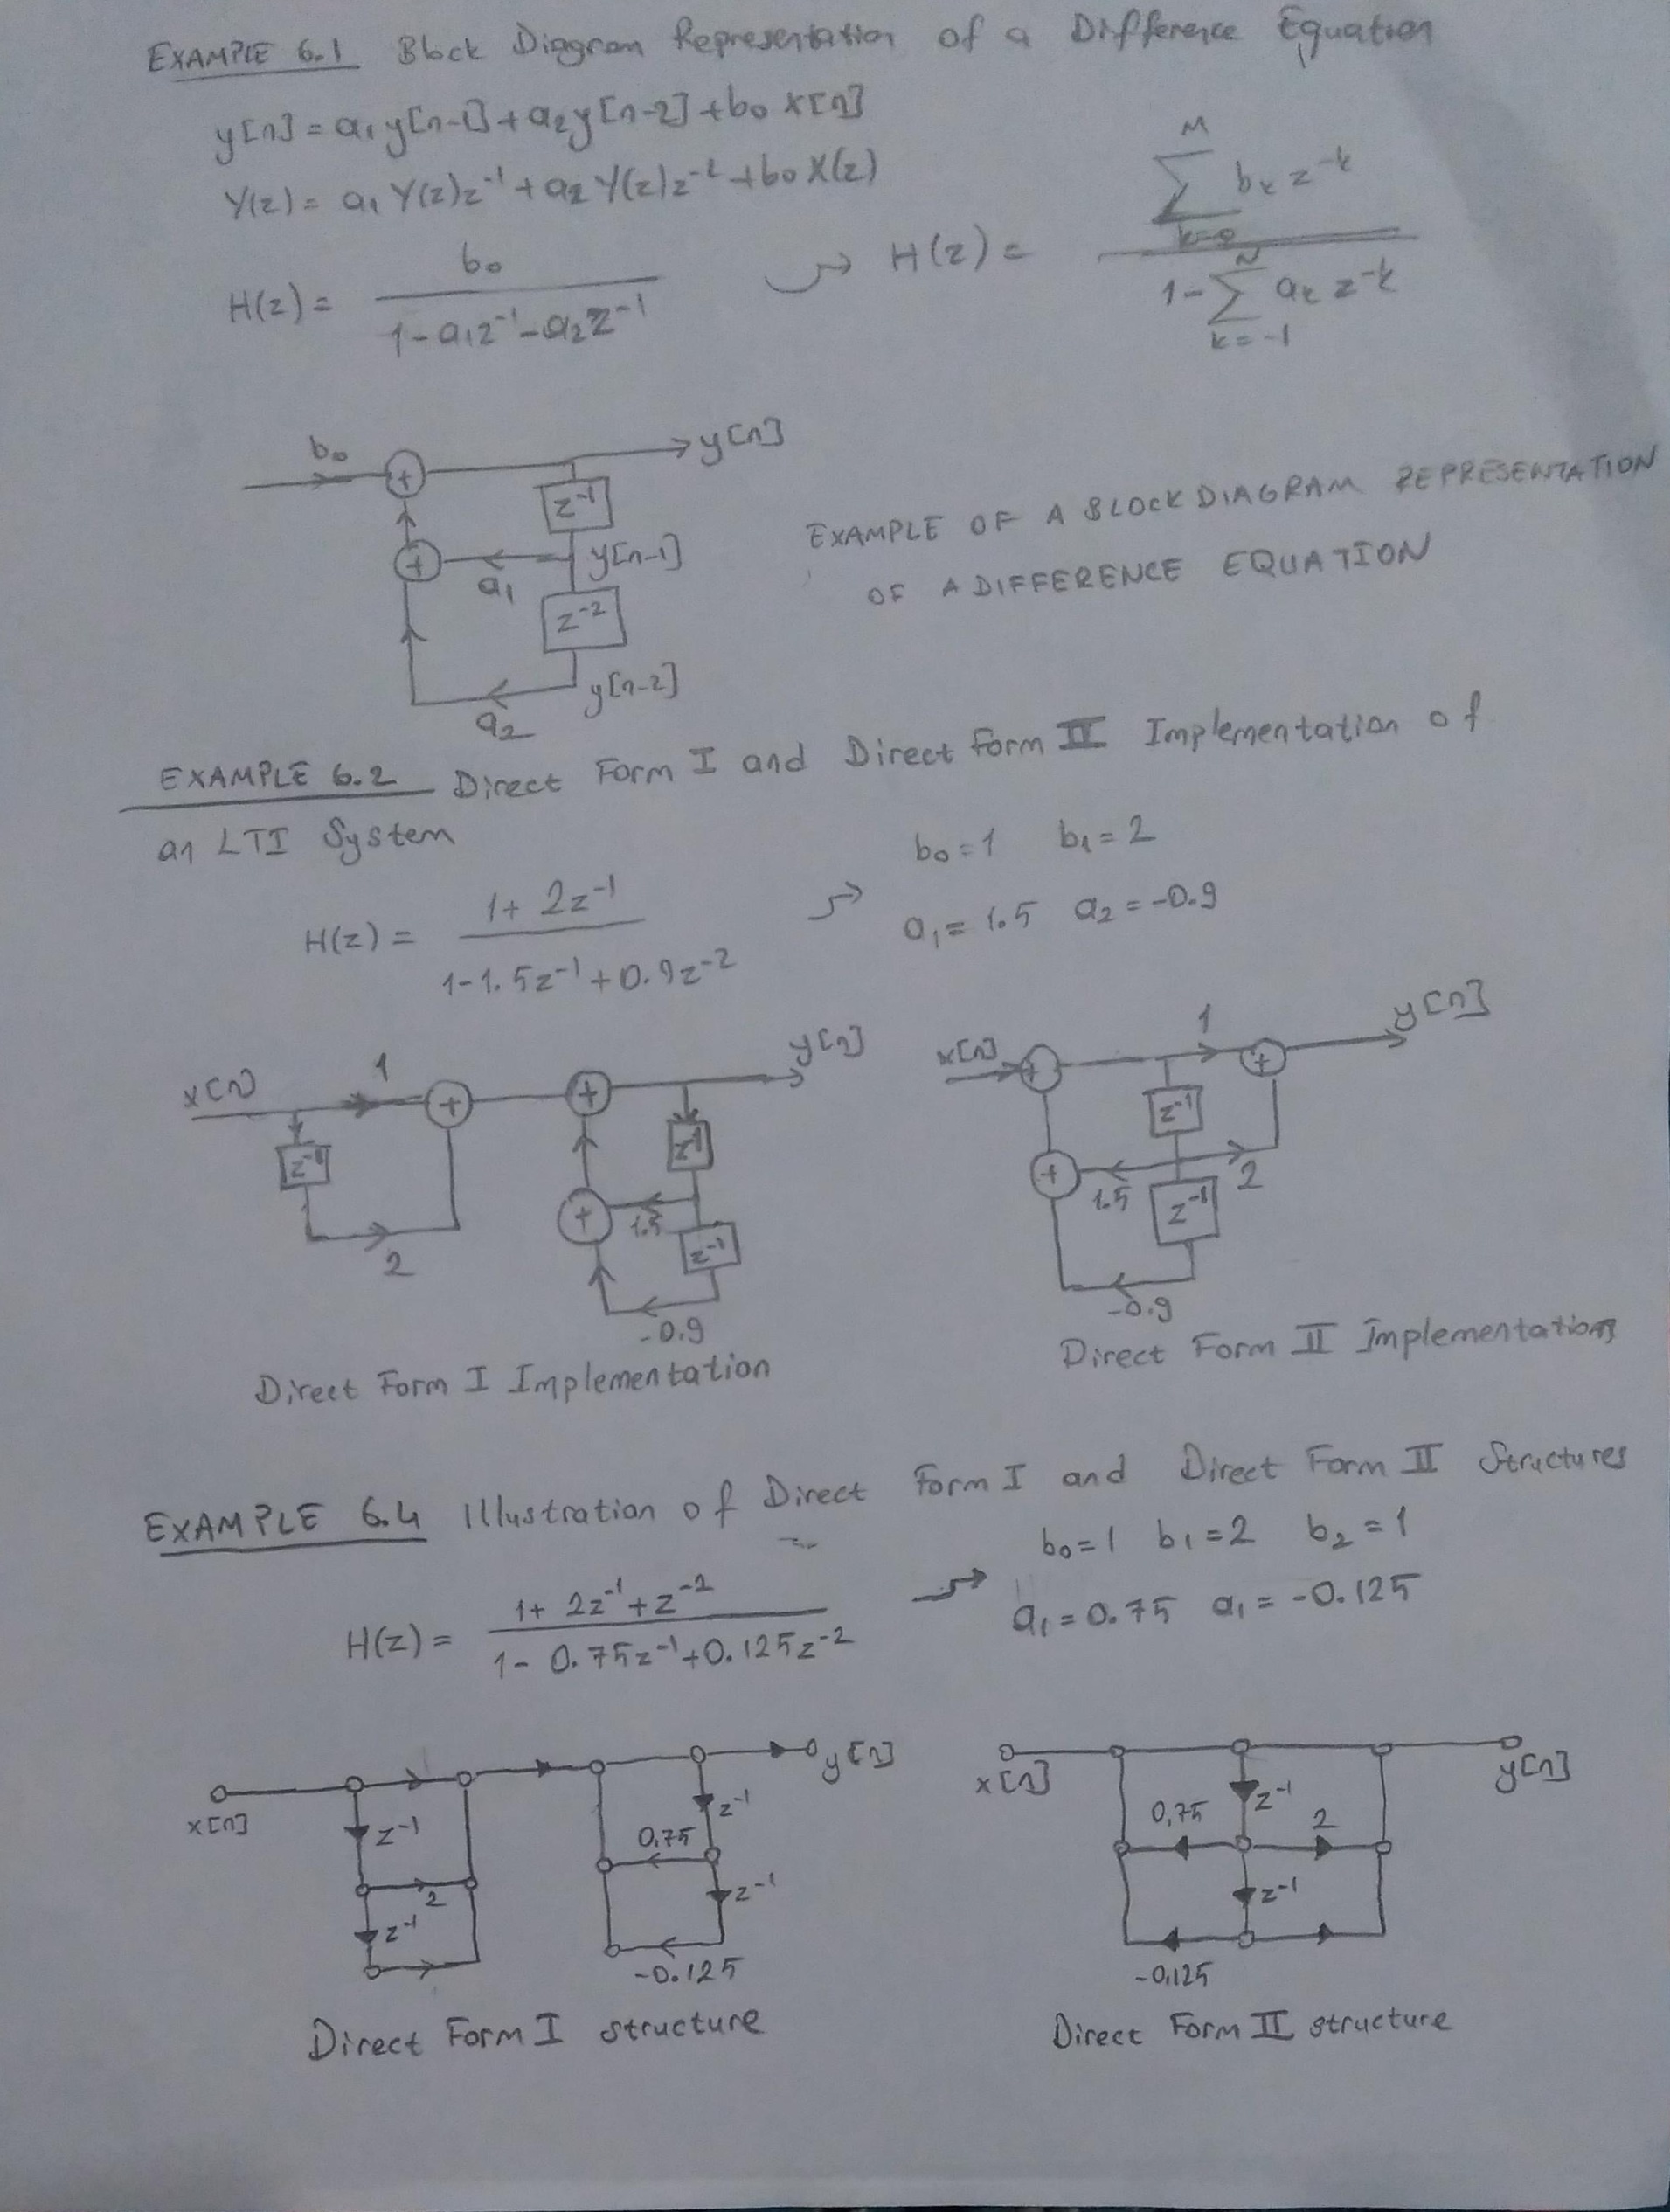 EXAMPLE 6.1 Block Diagram Representation of a Difference Equation
y[n] = a₁y[n-1] + a₂y[n-2] + b₀ x[n]
Y(z) = a₁ Y(z)z⁻¹ + a₂ Y(z)z⁻² + b₀ X(z)
H(z) = b₀ / 1 - a₁z⁻¹ - a₂z⁻¹ → H(z) = M ∑ k=0 bₖ z⁻ᵏ / 1 - N ∑ k=-1 aₖ z⁻ᵏ
b₀ + y[n]
z⁻¹
+ a₁ y[n-1]
z⁻²
a₂ y[n-2]
EXAMPLE OF A BLOCK DIAGRAM REPRESENTATION
OF A DIFFERENCE EQUATION
EXAMPLE 6.2 Direct Form I and Direct Form II Implementation of
an LTI System
H(z) = 1 + 2z⁻¹ / 1 - 1.5z⁻¹ + 0.9z⁻² → b₀ = 1 b₁ = 2
a₁ = 1.5 a₂ = -0.9
x[n] 1 + + y[n]
z⁻¹ z⁻¹
2 + 1.5
z⁻¹
-0.9
Direct Form I Implementation
x[n] + 1 + y[n]
z⁻¹
+ 1.5 2
z⁻¹
-0.9
Direct Form II Implementation
EXAMPLE 6.4 Illustration of Direct Form I and Direct Form II Structures
H(z) = 1 + 2z⁻¹ + z⁻² / 1 - 0.75z⁻¹ + 0.125z⁻² → b₀ = 1 b₁ = 2 b₂ = 1
a₁ = 0.75 a₁ = -0.125
x[n] y[n]
z⁻¹ z⁻¹
2 0.75
z⁻¹ z⁻¹
-0.125
Direct Form I structure
x[n] y[n]
z⁻¹
0,75 2
z⁻¹
-0,125
Direct Form II structure